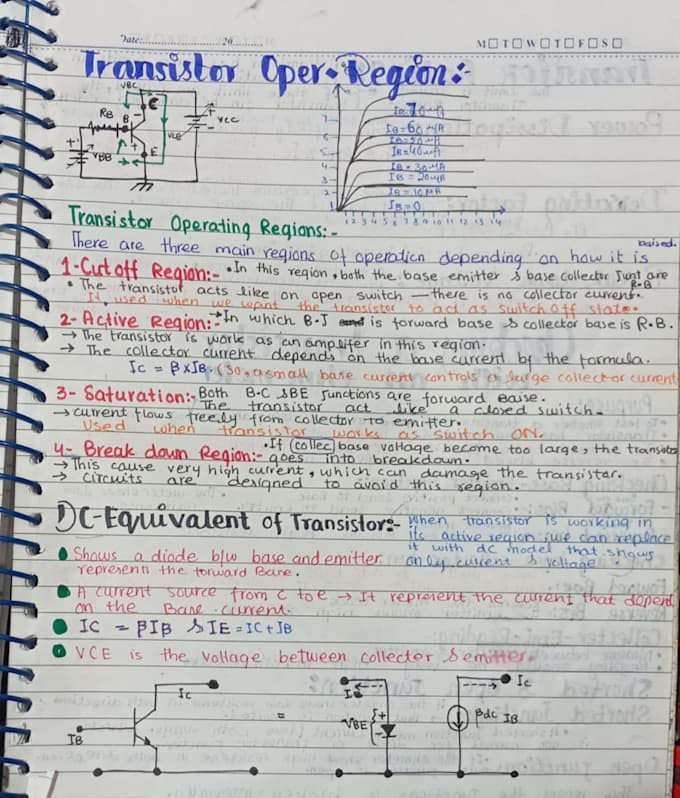 Date: 20
M T W T F S
Transistor Oper. Region:-
VBC
C
RB
B
VCC
VCE
E
VBB
IB=70 MA
IB=60 MA
IB=50 MA
IB=40 MA
IB=30 MA
IB=20 MA
IB=10 MA
IB=0
7
6
5
4
3
2
1
1 2 3 4 5 6 7 8 9 10 11 12 13 14
Transistor Operating Regions:-
There are three main regions of operation depending on how it is baised.
1-Cut off Region:- • In this region, both the base emitter & base collector Junt are R.B
• The transistor acts like on open switch — there is no collector current.
It used when we want the transistor to act as switch off state.
2- Active Region:- → In which B.J is forward base & collector base is R.B.
→ The transistor is work as an amplifer in this region.
→ The collector current depends on the base current by the formula.
Ic = β × IB. (So, a small base current controls a large collector current
3- Saturation:- Both B-C & BE Junctions are forward Baise.
The transistor act like a closed switch.
→ current flows freely from collector to emitter.
Used when transistor works as switch ON.
4- Break down Region:- • If (collec) base voltage become too large, the transistor
goes into breakdown.
→ This cause very high current, which can damage the transistor.
→ circuits are designed to avoid this region.
DC-Equivalent of Transistor:- When transistor is working in
its active region, we can replace
it with dc model that shows
only current & voltage
Shows a diode b/w base and emitter
represents the forward Bane.
A current source from C to E → It represent the current that depend
on the Bane current.
IC = βIB & IE = IC + IB
VCE is the voltage between collector & emitter.
Ic
IB
=
IB
VBE
+
-
Ic
βdc IB